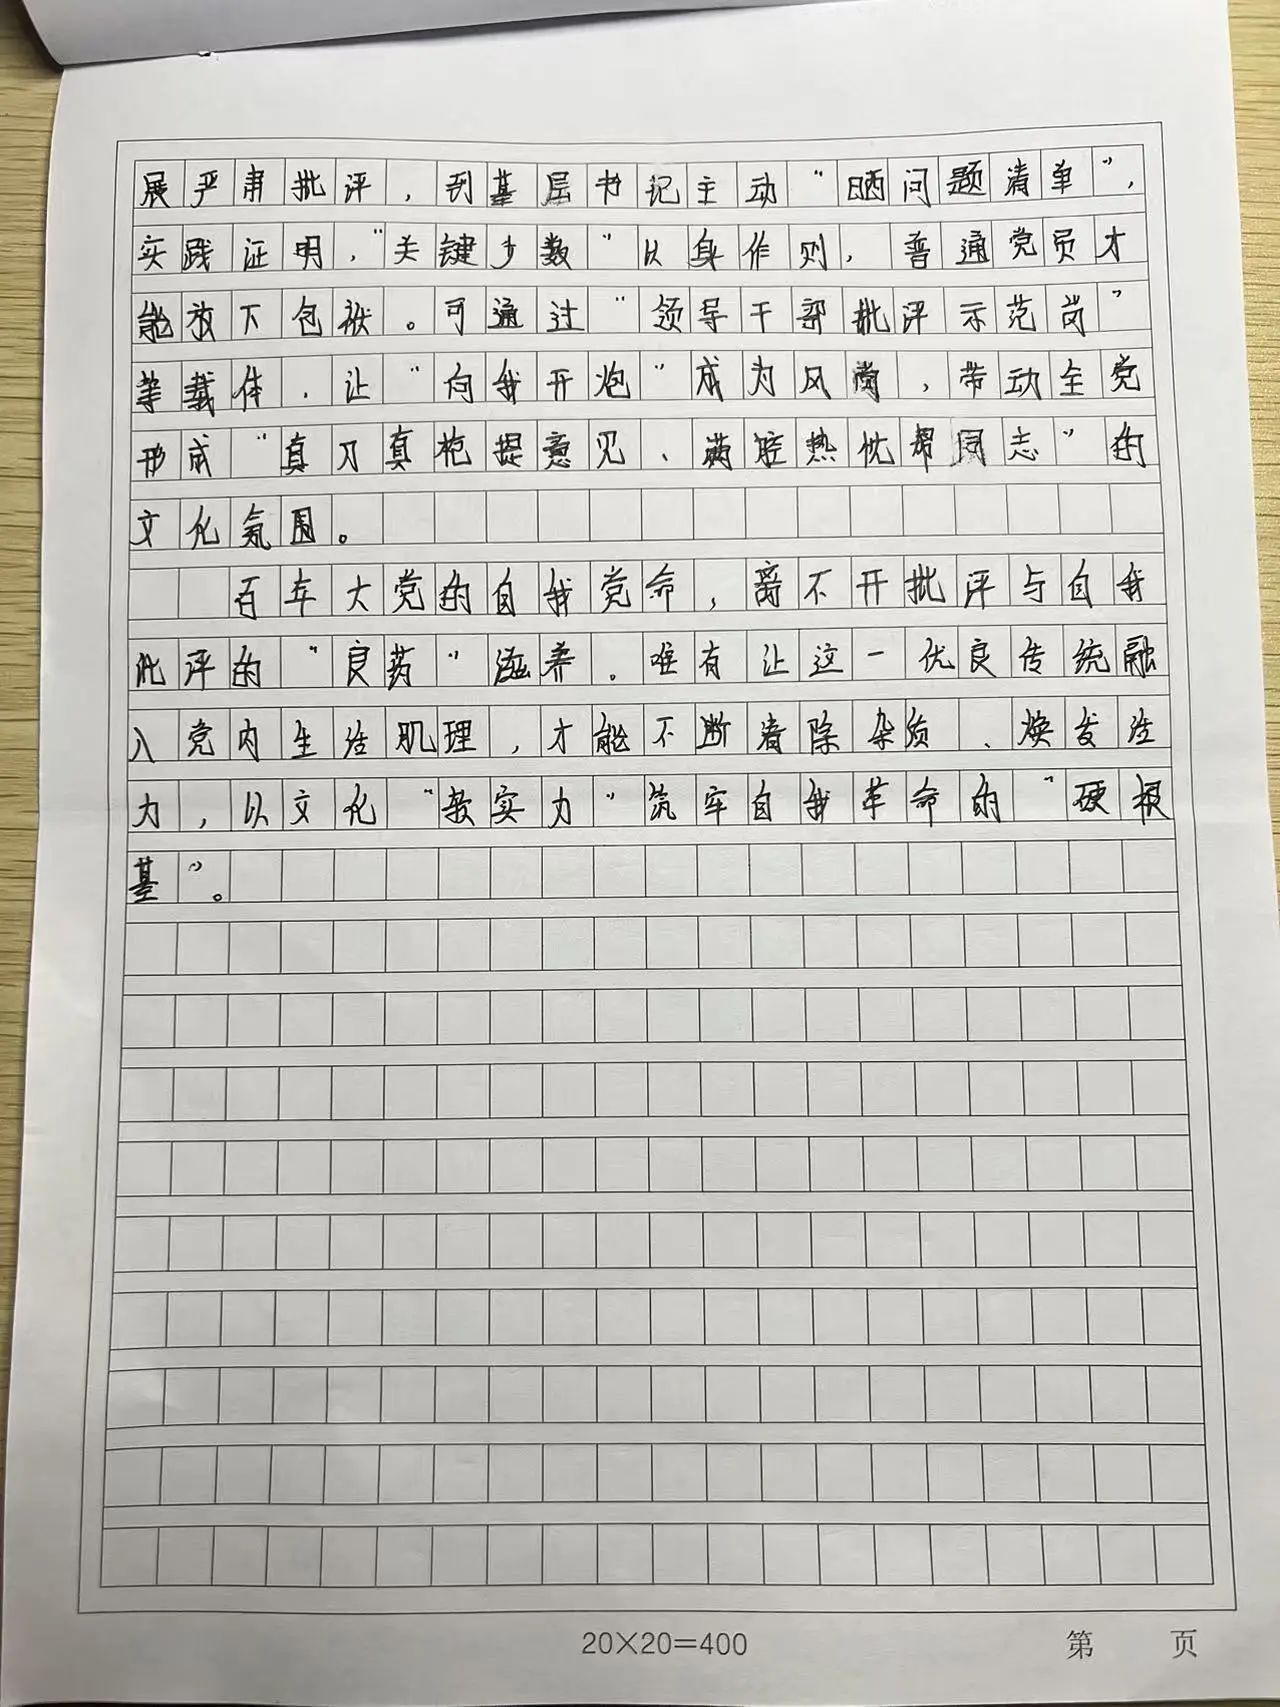 展严肃批评，到基层书记主动“晒问题清单”，
实践证明，“关键少数”以身作则，普通党员才
能放下包袱。可通过“领导干部批评示范岗”
等载体，让“向我开炮”成为风尚，带动全党
形成“真刀真枪提意见、满腔热忱帮同志”的
文化氛围。
百年大党的自我党命，离不开批评与自我
批评的“良药”滋养。唯有让这一优良传统融
入党内生活肌理，才能不断清除杂质、焕发活
力，以文化“软实力”筑牢自我革命的“硬根
基”。
20×20=400
第 页